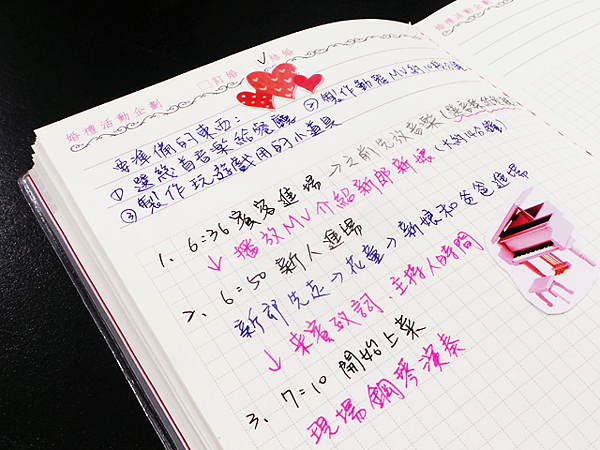 婚禮活動企劃 □訂婚 ✓結婚
要準備的東西:
① 選幾首音樂給餐廳 ② 製作動態MV約10分鐘
③ 製作玩遊戲用的小道具
1、6:30 賓客進場 → 之前先放音樂
↓ 播放MV介紹新郎新娘 (大約10分鐘)
2、6:50 新人進場
新郎先走→花童→新娘和爸爸進場
↓ 來賓致詞、主持人時間
3、7:10 開始上菜
現場鋼琴演奏
婚禮活動企劃